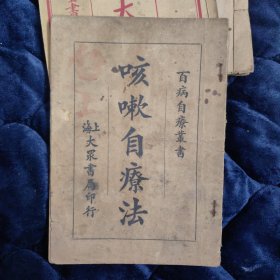 百病自療叢書
咳嗽自療法
上海大眾書局印行
大